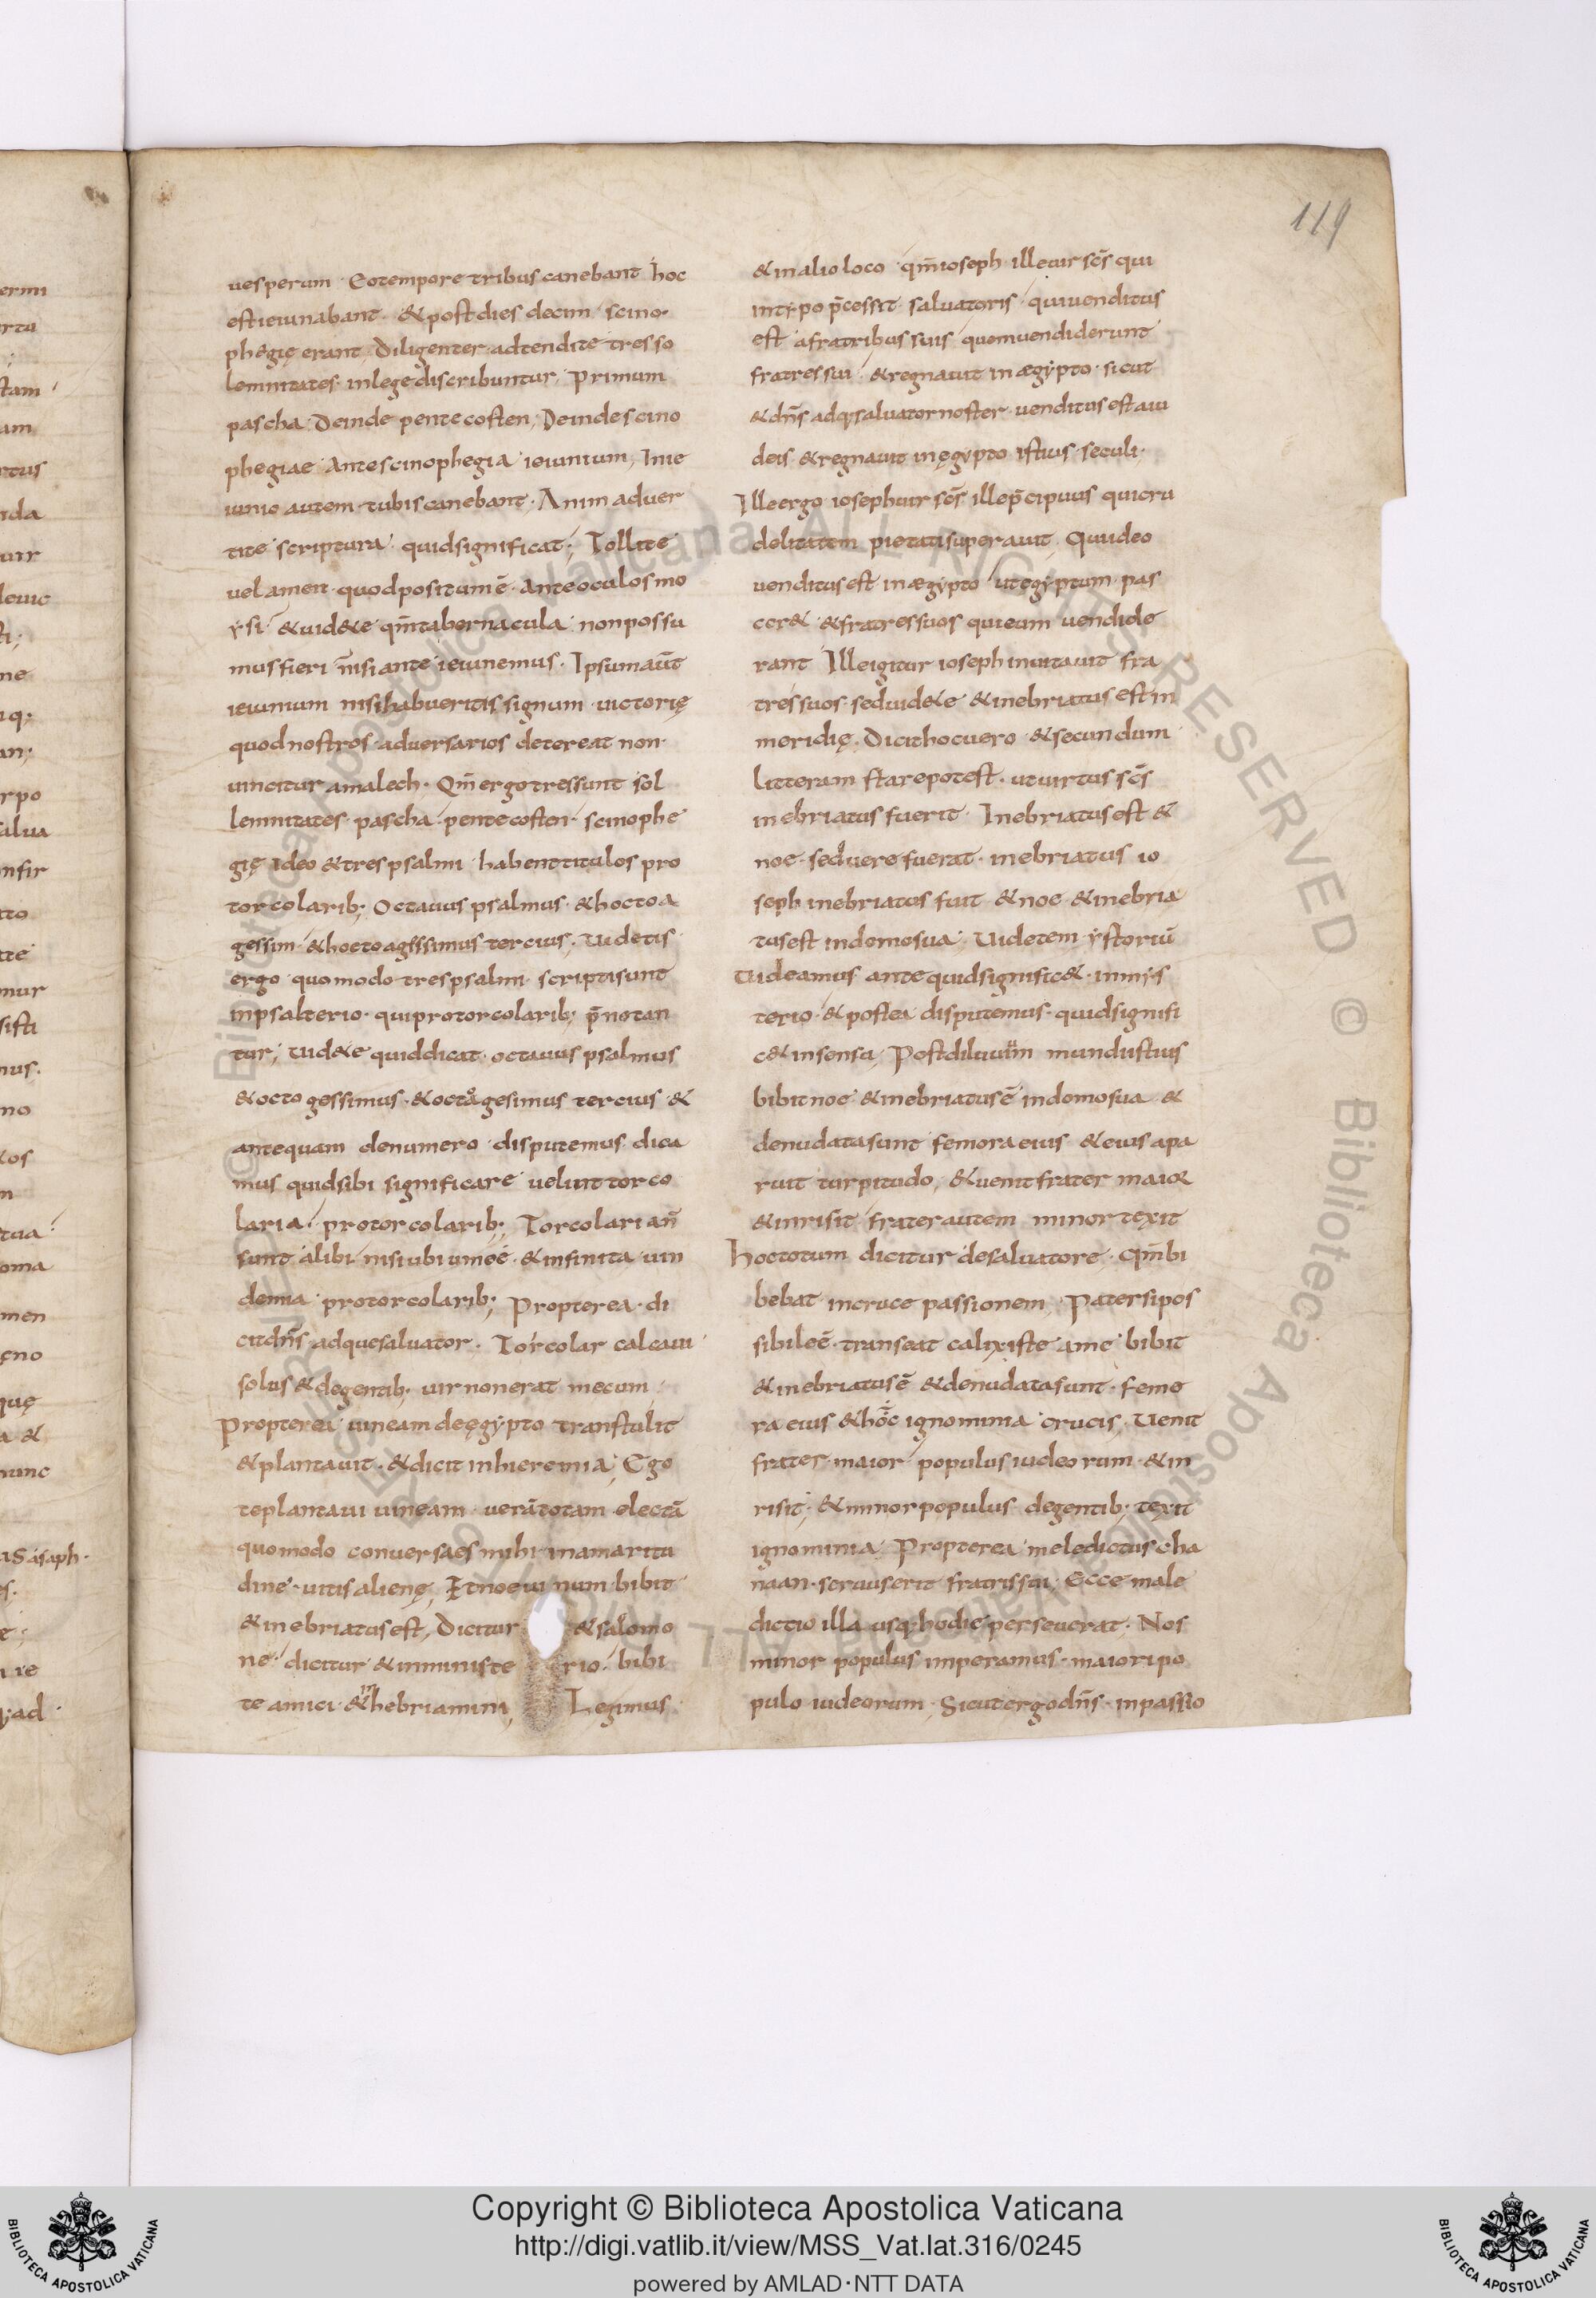 119
uesperum · Eotempore tribus canebant hoc
est ieiunabant · & post dies decim scino·
phegię erant, Diligenter adtendite tres so
lemnitates · in lege discribuntur · Primum
pascha · Deinde pentecosten; Deinde scino
phegiae · Ante scinophegia ieiunium, In ie
iunio autem tubis canebant · Anim aduer
tite scriptura quid significat; Tollite
uelamen · quod positum ē · ante oculos mo
ysi & uid&e qm̄ tabernacula non possu
mus fieri nisi ante ieiunemus · Ipsum aūt
ieiunium nisi habueritis signum uictorię
quod nostros aduersarios detereat non·
uincitur amalech · Qm̄ ergo tres sunt sol
lemnitates · pascha · pentecosten · scinophe
gię ideo & tres psalmi habent titulos pro
torcolarib; Octauus psalmus · & hoctoa
gessim · & hoctoagissimus tercius; Uidetis
ergo quomodo tres psalmi scripti sunt
in psalterio · qui pro torcolarib; p̄notan
tur; Uid&e quid dicat octauus psalmus
& octogessimus · & octagesimus tercius &
antequam de numero disputemus dica
mus quid sibi significare uelint torco
laria · pro torcolarib;; Torcolari añ
sunt alibi nisi ubi uineę · & infinita uin
demia pro torcolarib; Propterea · di
cit dn̄s adque saluator · Torcolar calcaui
solus & de gentib; uir non erat mecum
Propterea uineam de ęgypto transtulit
& plantauit · & dicit in hieremia; Ego
te plantaui uineam uerā totam electā
quomodo conuersa es mihi in amaritu
dine · uitis alienę, Et noe uinum bibit
& inebriatus est, Dicitur & salomo
ne · dicitur & in ministe rio · bibi
te amici & inhebriamini, Legimus
& in alio loco qm̄ ioseph ille uir sc̄s qui
in typo p̄cessit saluatoris qui uenditus
est a fratribus suis quem uendiderunt
fratres sui & regnauit in ægypto · sicut
& dn̄s adq; saluator noster uenditus est a iu
deis & regnauit in ęgypto istius seculi·
Ille ergo ioseph uir sc̄s ille p̄cipuus qui cru
delitatem pietati superauit, Qui ideo
uenditus est in ægypto ut egyptum pas
cer& & fratres suos qui eum uendide
rant Ille igitur ioseph inuitauit fra
tres suos · sed uid&e & inebriatus est in
meridię · Dicit hoc uero & secundum
litteram stare potest · ut uirtus sc̄s
inebriatus fuerit · Inebriatus est &
noe · sed uere fuerat inebriatus io
seph inebriatus fuit & noe & inebria
tus est in domo sua; Uidetem ystoriū
Uideamus ante quid signific& · in mys
terio · & postea disputemus · quid signifi
c& in sensu, Post diluuium mundustuis
bibit noe & inebriatus ē in domo sua &
denudata sunt femora eius & eius apa
ruit turpitudo, & uenit frater maior
& inrisit frater autem minor texit
hoc totum dicitur de saluatore, Qm̄ bi
bebat in cruce passionem, Pater si pos
sibile ē · transeat calix iste a me bibit
& inebriatus ē & denudata sunt · femo
ra eius & hoc ignominia crucis, Uenit
frater maior populus iudeorum & in
risit; & minor populus de gentib; texit
ignominia, Propterea meledictus cha
naan · seruus erit fratris sui; Ecce male
dictio illa usq; hodie perseuerat · Nos
minor populus imperamus · maiori po
pulo iudeorum, Sicut ergo dn̄s · in passio
Copyright © Biblioteca Apostolica Vaticana
http://digi.vatlib.it/view/MSS_Vat.lat.316/0245
powered by AMLAD·NTT DATA